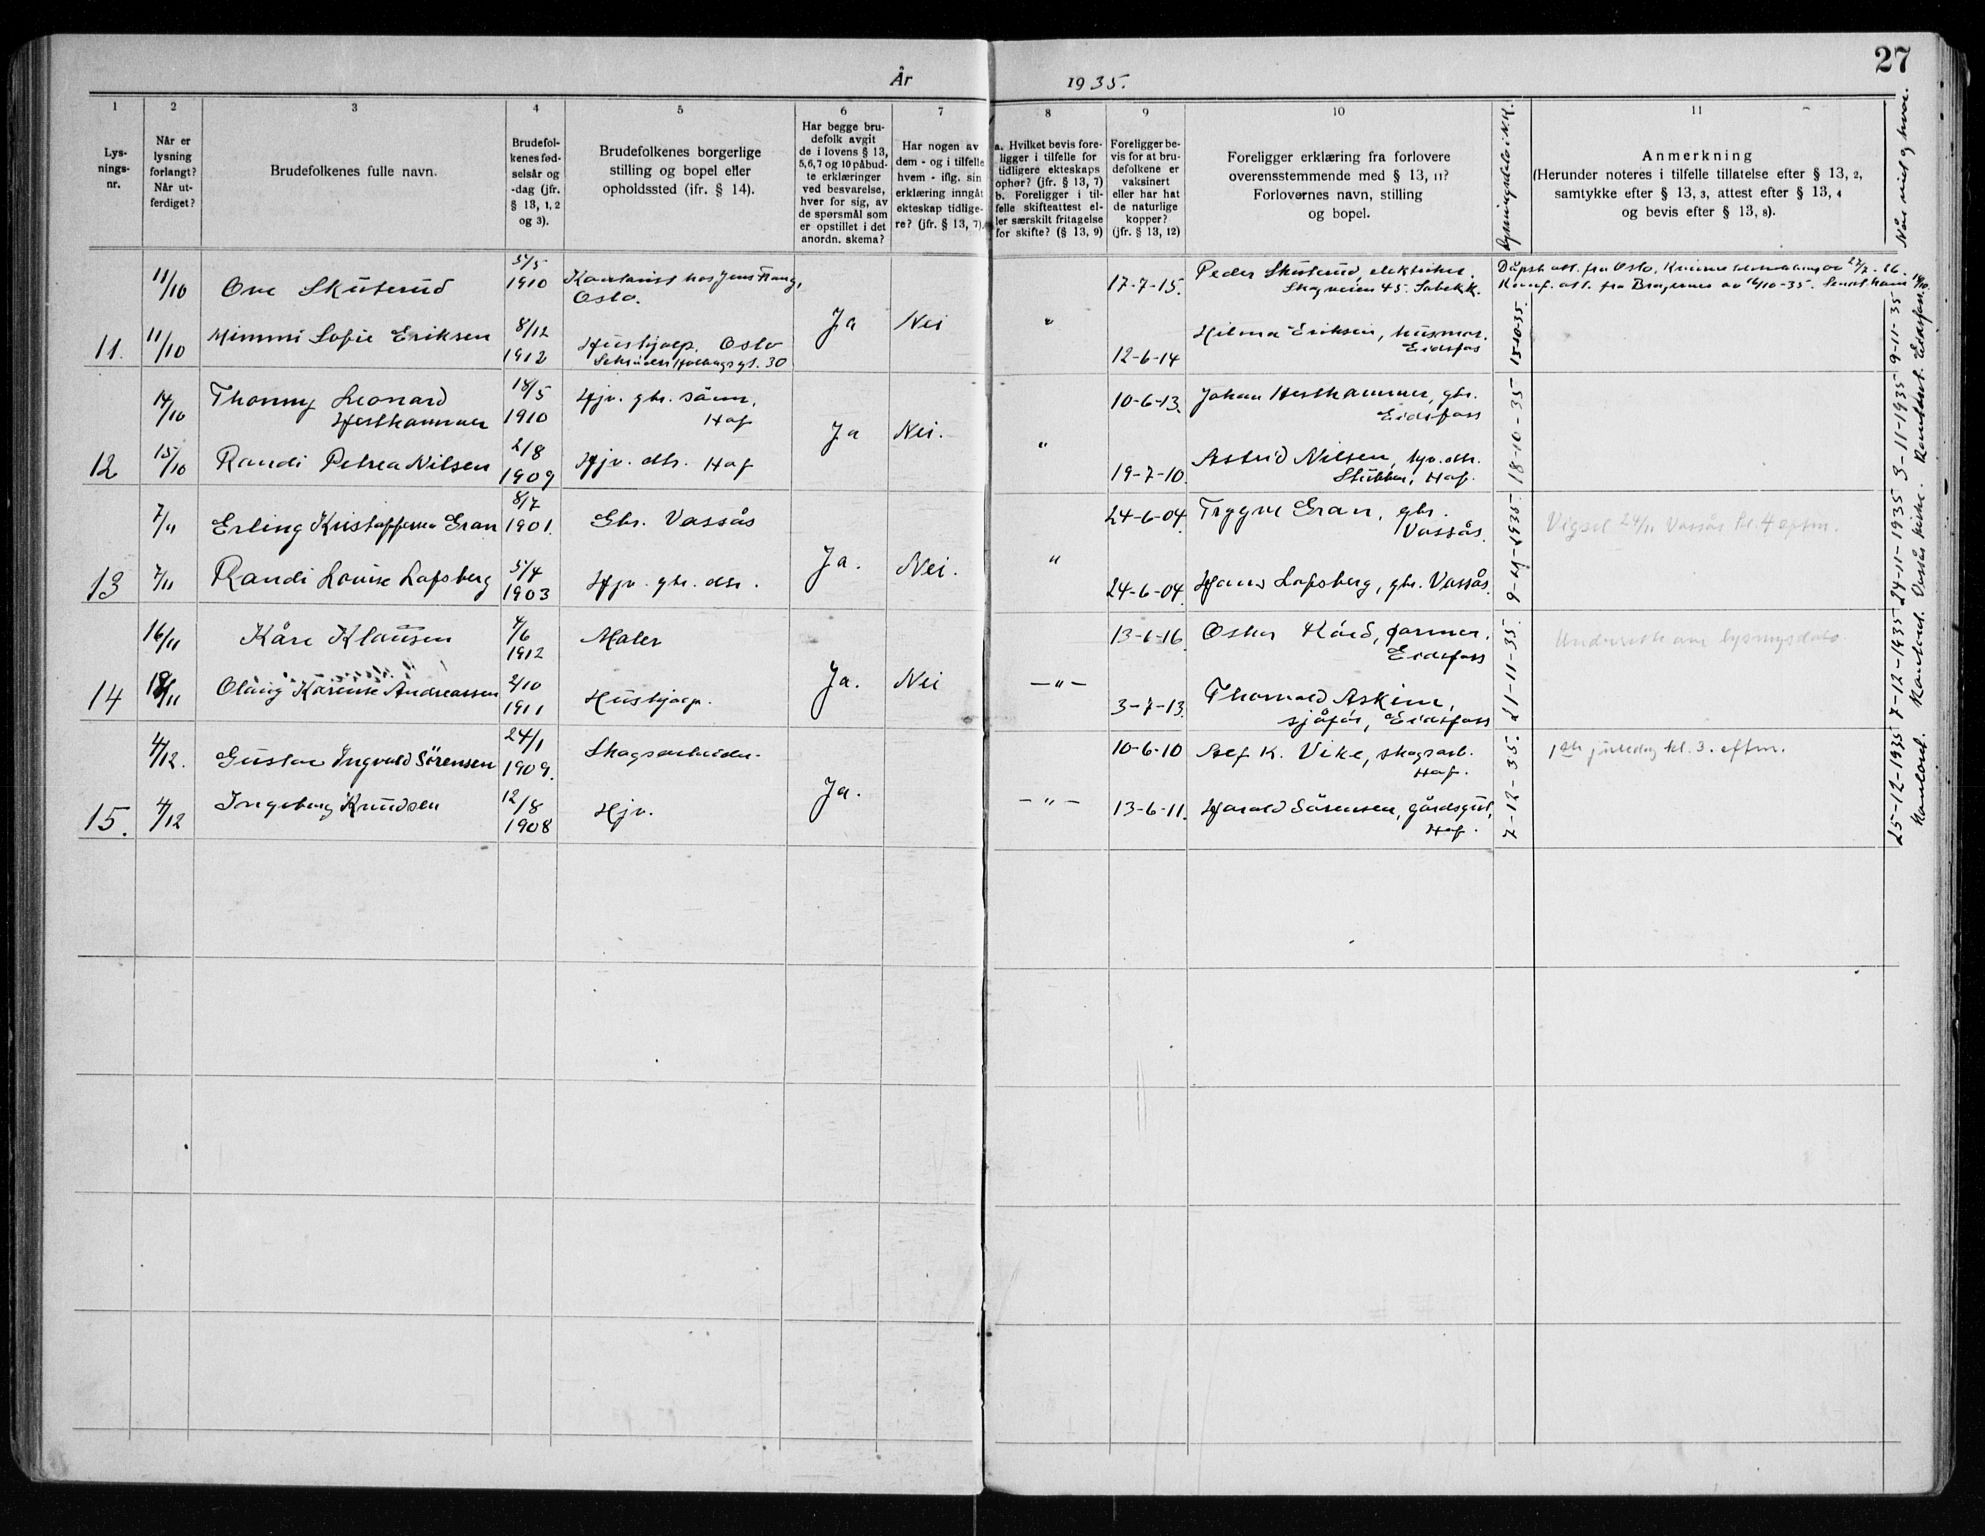 27
År 1935.
1 2 3 4 5 6 7 8 9 10 11
Lys-
nings-
nr.
Når er
lysning
forlangt?
Når ut-
ferdiget?
Brudefolkenes fulle navn.
Brudefol-
kenes fød-
selsår og
-dag (jfr.
§ 13, 1, 2
og 3).
Brudefolkenes borgerlige
stilling og bopel eller
opholdssted (jfr. § 14).
Har begge bru-
defolk avgit
de i lovens § 13,
5,6,7 og 10 påbud-
te erklæringer
ved besvarelse,
hver for sig, av
de spørsmål som
er opstillet i det
anordn. skema?
Har nogen av
dem - og i tilfelle
hvem - iflg. sin
erklæring inngåt
ekteskap tidlige-
re? (jfr. § 13, 7).
a. Hvilket bevis fore-
ligger i tilfelle for
tidligere ekteskaps
ophør? (jfr. § 13, 7)
b. Foreligger i til-
felle skifteattest el-
ler særskilt fritagelse
for skifte? (§ 13, 9)
Foreligger be-
vis for at bru-
defolkene er
vaksinert
eller har hat
de naturlige
kopper?
(jfr. § 13, 12)
Foreligger erklæring fra forlovere
overensstemmende med § 13, 11?
Forlovernes navn, stilling
og bopel.
Anmerkning
(Herunder noteres i tilfelle tillatelse efter § 13, 2,
samtykke efter § 13, 3, attest efter § 13, 4
og bevis efter § 13, 8).
Når viet og hvor.
11/10 Ove Skuterud 5/5 1910 Oslo. 17-7-15. Peder Skuterud,
Skogveien 45.
11. 11/10 Mimmi Sofie Eriksen 8/12 1912 Hushjælp. Oslo 30 Ja Nei " 12-6-14 Hilma Eriksen, husmor. Eidsfos 15-10-35 9-11-35
14/10 Thonny Leonard
Hesthammer 18/5 1910 Hjv. gbr. sønn, Hof 10-6-13. Johan Hesthammer, gbr.
Eidsfoss
12 15/10 Randi Petrea Nilsen 2/8 1909 Hjv. dtr. Hof Ja Nei. " 19-7-10. Astrid Nilsen, hjv. dtr.
Hof. 18-10-35 3-11-1935
7/11 Erling Kristoffersen Gran 8/7 1901. Gbr. Vassås 24-6-04. Trygve Gran, gbr.
Vassås. Vigsel 24/11 Vassås kl. 4 eftm.
13 7/11 Randi Louise Lofsberg 5/4 1903 Hjv. gbr. dtr. Ja. Nei. " 24-6-04. Hans Lofsberg, gbr. Vassås. 24-11-1935 Vassås kirke.
16/11 Kåre Klausen 4/6 1912 Maler 13-1-16 Oskar
Eidsfoss
14 18/11 Olaug Karense Andreassen 2/10 1911 Hushjælp. Ja. Nei -"- 3-7-13. Thorvald Askim,
sjåfør, Eidsfoss 21-11-35. 7-12-1935
4/12. Gustav Ingvald Sörensen 24/1 1909. Skogsarbeider 10-6-10 Alf K. Vike, skogsarb.
Hof. 1ste juledag kl. 3. eftm.
15. 4/12 Ingeborg Knudsen 12/8 1908 Hjv. Ja. -"- 13-6-11. Harald Sörensen,
Hof. 7-12-35. 25-12-1935